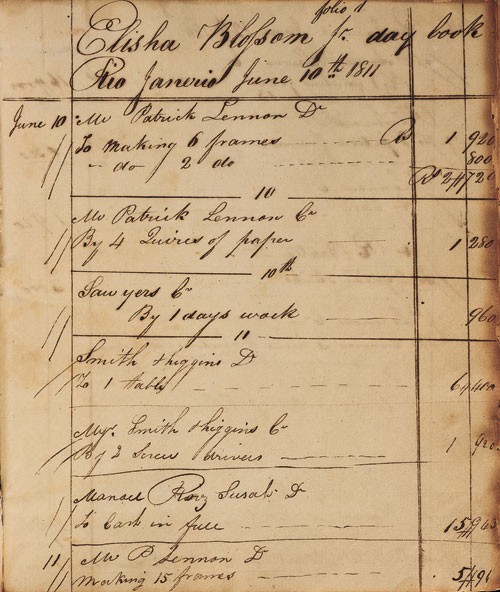 folio 1
Elisha Blossom Jr. day book
Rio Janerio June 10th 1811
June 10 Mr Patrick Lennon Dr
To making 6 frames 1 920
do 2 do 800
Rs 2#720
10
Mr Patrick Lennon Cr
By 4 Quires of paper 1 280
10th
Sawyers Cr
By 1 days work 960
11
Smith & higgins Dr
To 1 table 6#400
Smith & higgins Cr
By 2 Screw drivers 1 920
Manoel Susah Dr
To Cash in full
11 Mr P Lennon Dr
Making 15 frames